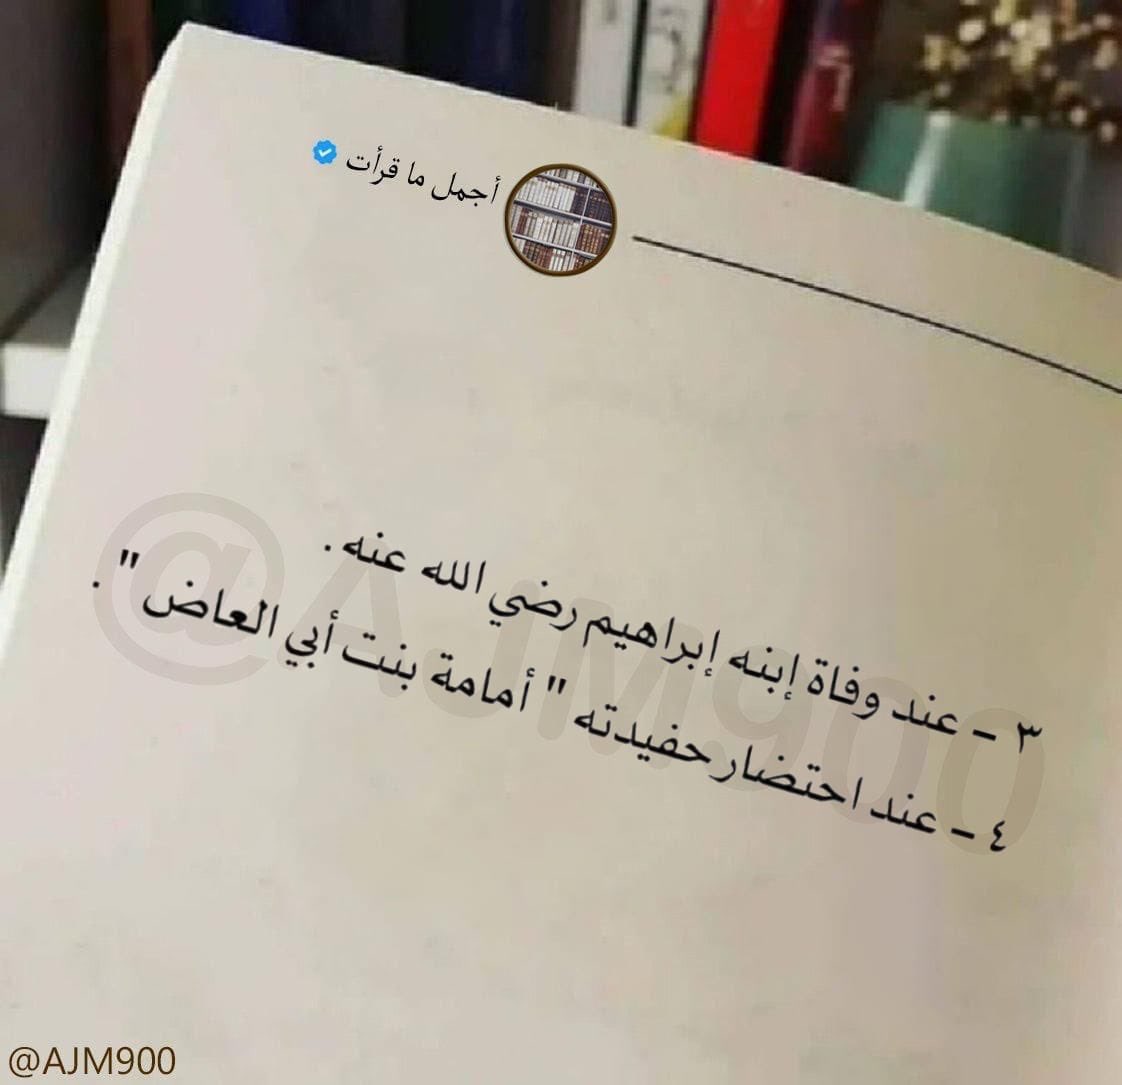 أجمل ما قرأت
٣ - عند وفاة إبنه إبراهيم رضي الله عنه .
٤ - عند احتضار حفيدته " أمامة بنت أبي العاض " .
@AJM900
@AJM900